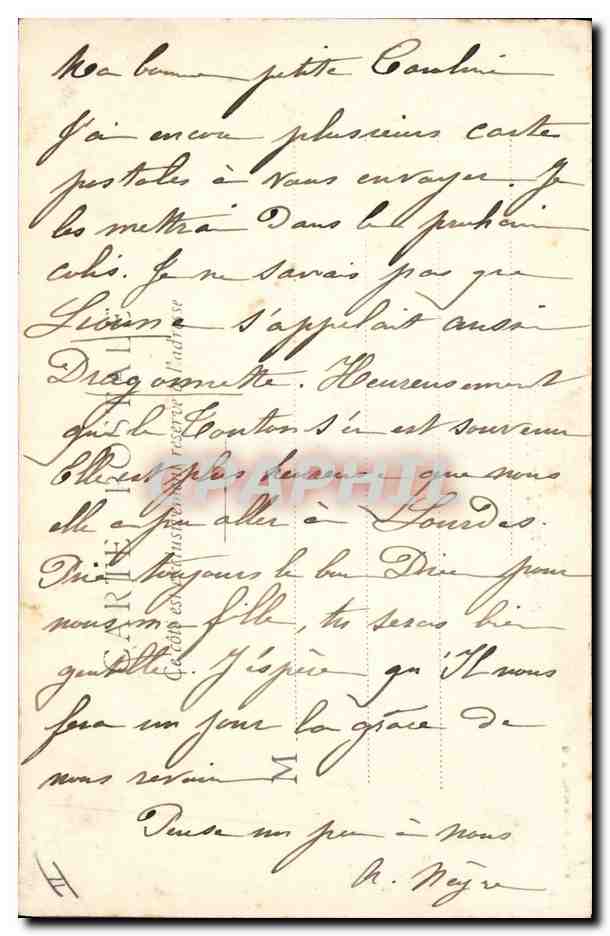 Ma bonne petite Caroline
J'ai encore plusieurs carte
postales à vous envoyer. Je
les mettrai Dans le prochain
colis. Je ne savais pas que
s'appelait aussi
Dragonnette. Heureusement
que le Tonton s'en est souvenu
Elle est plus heureuse que nous
elle a pu aller à Lourdes.
Prie toujours le bon Dieu pour
nous ma fille, tu seras bien
gentille. J'espère qu'Il nous
fera un jour la grâce de
nous revoir
Pense un peu à nous
CARTE POSTALE
Ce côté est exclusivement réservé à l'adresse
M
CPAPHIL
II